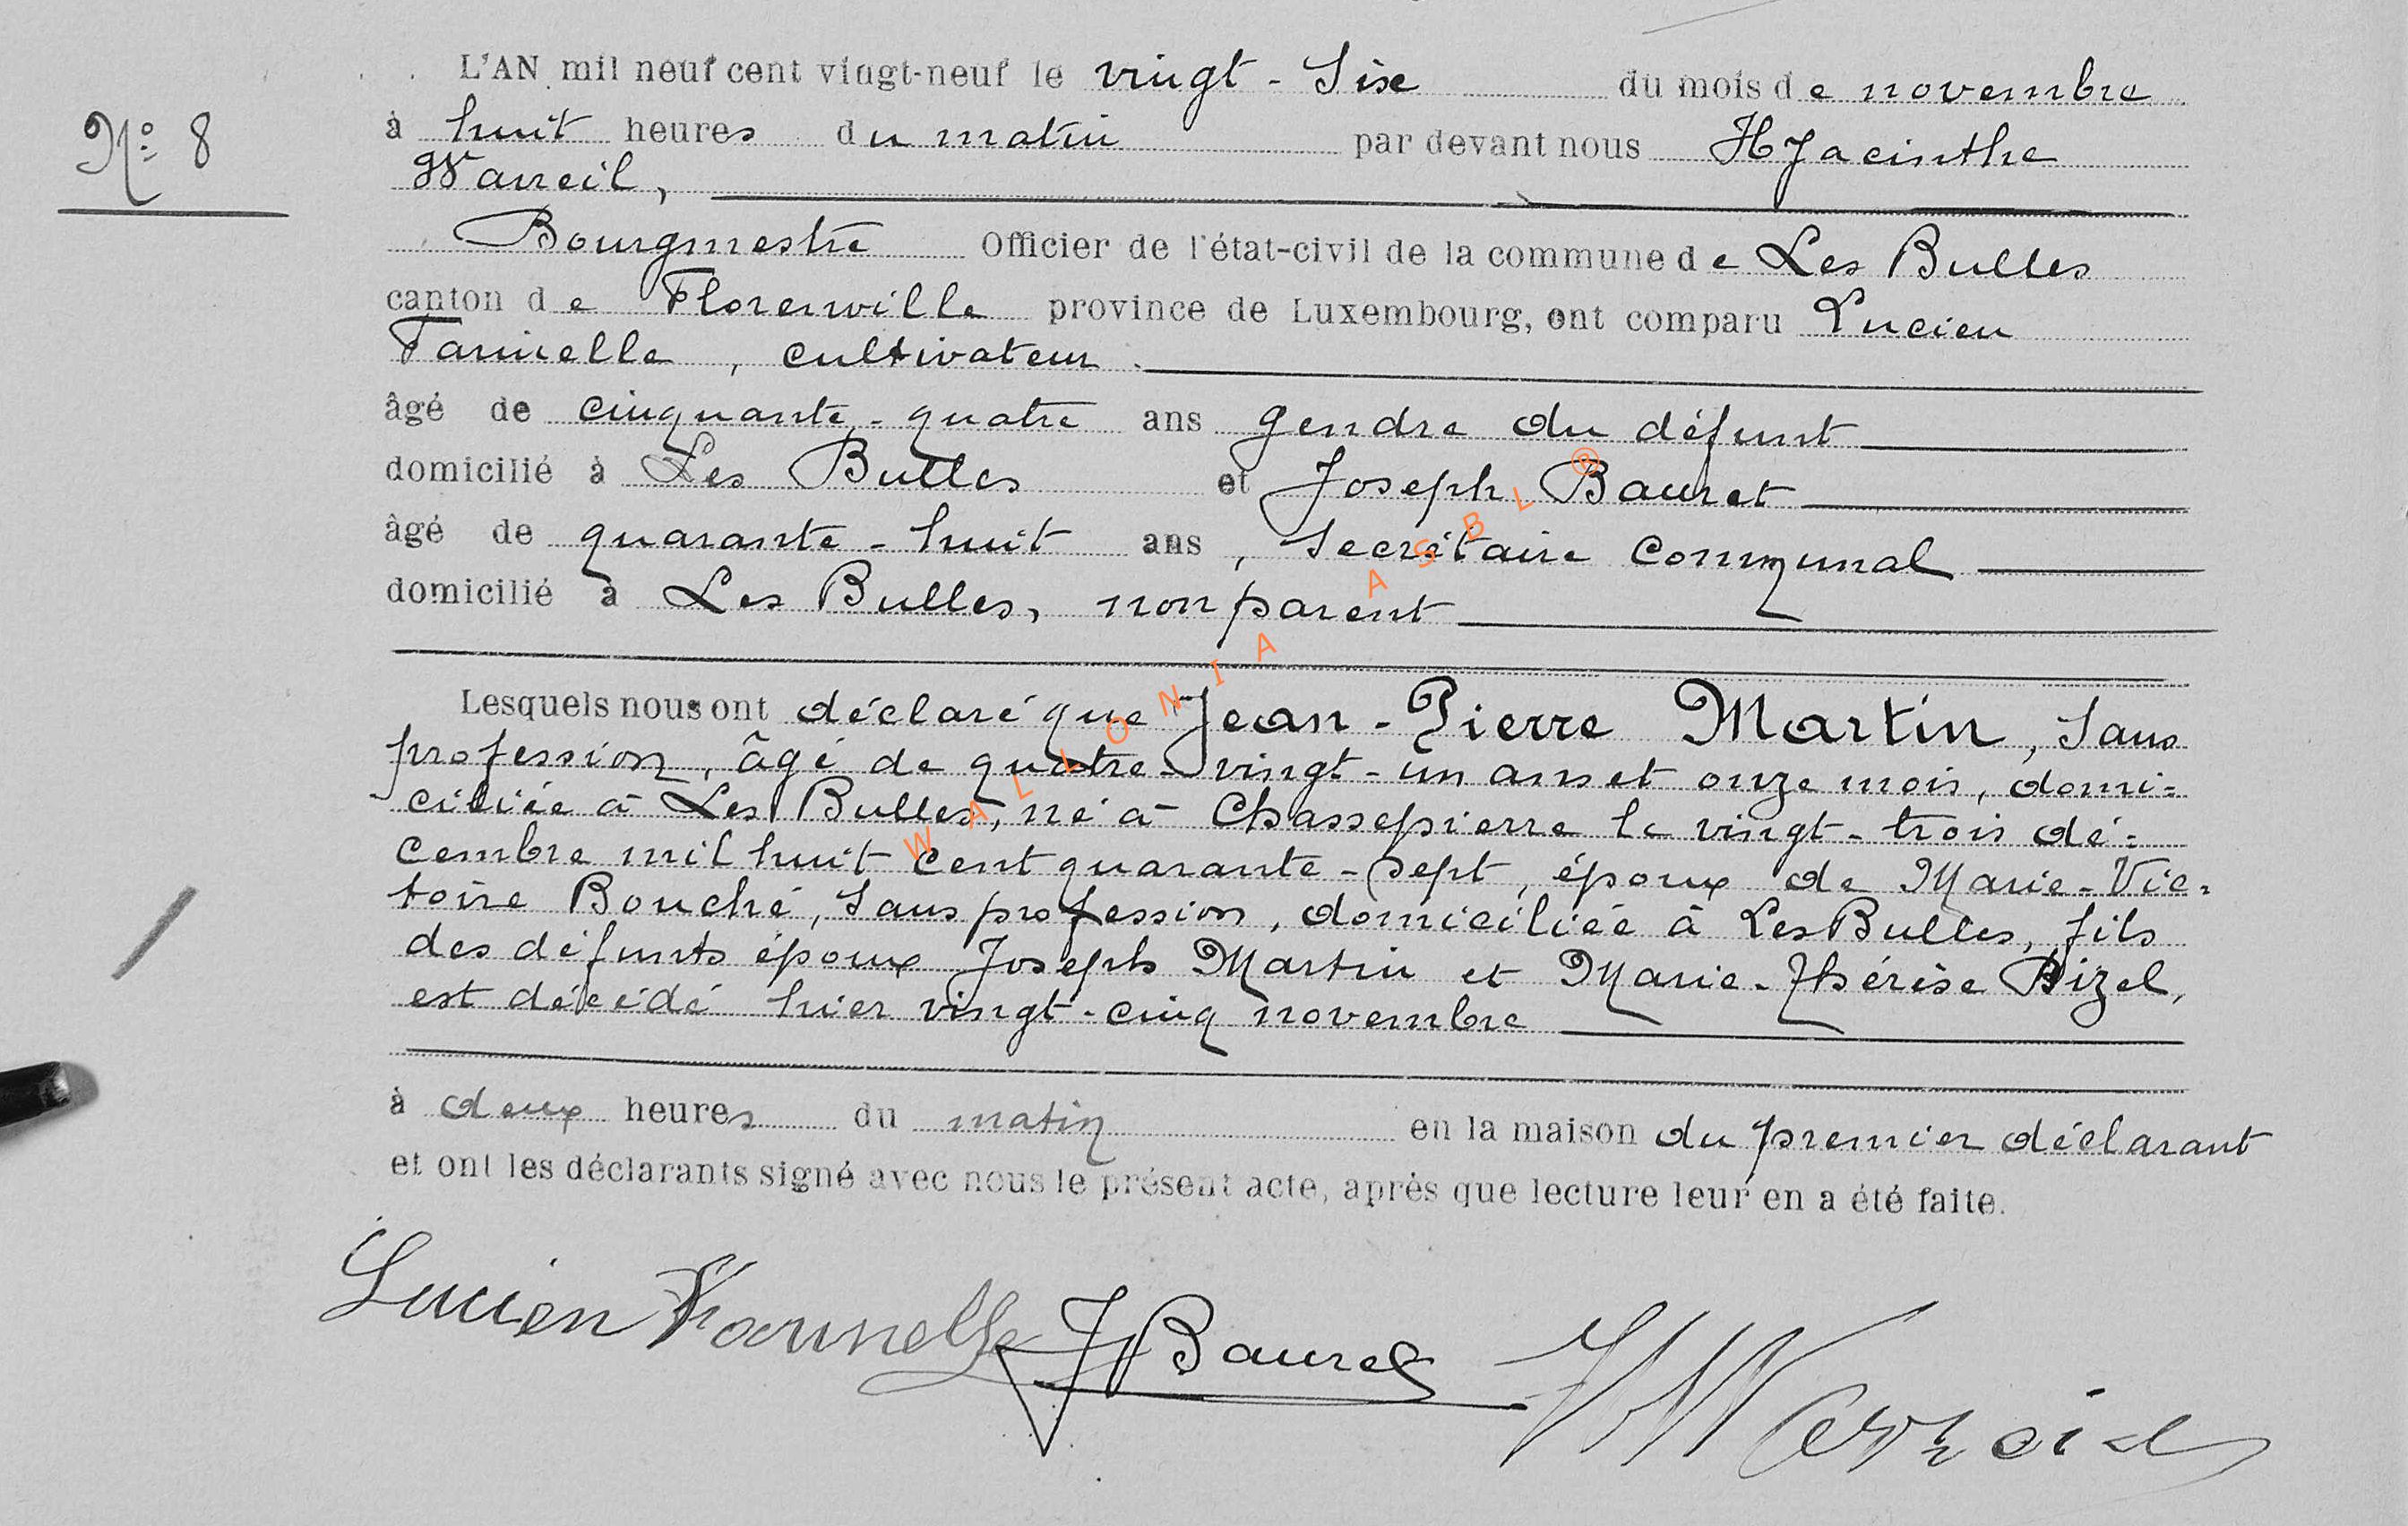 L'AN mil neuf cent vingt-neuf le vingt-six du mois de novembre
N° 8
à huit heures du matin par devant nous Hyacinthe
Warreil,
Bourgmestre Officier de l'état-civil de la commune de Les Bulles
canton de Florenville province de Luxembourg, ont comparu Lucien
cultivateur.
âgé de cinquante-quatre ans gendre du défunt
domicilié à Les Bulles et Joseph Bauret
âgé de quarante-huit ans, secrétaire communal
domicilié à Les Bulles, non parent
Lesquels nous ont déclaré que Jean-Pierre Martin, sans
profession, âgé de quatre-vingt-un ans et onze mois, domi=
ciliée à Les Bulles, né à Chassepierre le vingt-trois dé=
cembre mil huit cent quarante-sept, époux de Marie-Vic=
toire Bouché, sans profession, domiciliée à Les Bulles, fils
des défunts époux Joseph Martin et Marie-Thérèse Bizel,
est décédé hier vingt-cinq novembre
à deux heures du matin en la maison du premier déclarant
et ont les déclarants signé avec nous le présent acte, après que lecture leur en a été faite.
Lucien JBauret
WALLONIA ASBL ®